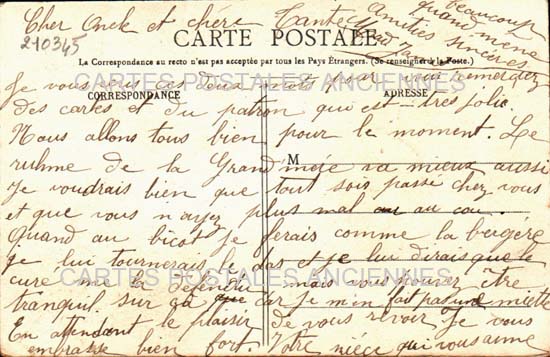 Cher Oncle et chère Tante
210345
beaucoup
grand mère
Amitiés sincères
CARTE POSTALE
La Correspondance au recto n'est pas acceptée par tous les Pays Étrangers. (Se renseigner à la Poste.)
CARTES POSTALES ANCIENNES
Je vous mis ces deux mots pour vous remercier
CORRESPONDANCE
ADRESSE
des cartes et du patron qui est très jolie.
Nous allons tous bien pour le moment. Le
M
ruhme de la Grand mère va mieux aussi
Je voudrais bien que tout sois passé chez vous
et que vous n'ayez plus mal au cou.
Quand au bicot je ferais comme la bergère
je lui tournerais le dos et je lui dirais que le
CARTES POSTALES ANCIENNES
curé me l'a défendu mais vous pouvez être
tranquil sur ça car je m'en fait pas une miette
En attendant le plaisir de vous revoir Je vous
embrasse bien fort. Votre nièce qui vous aime